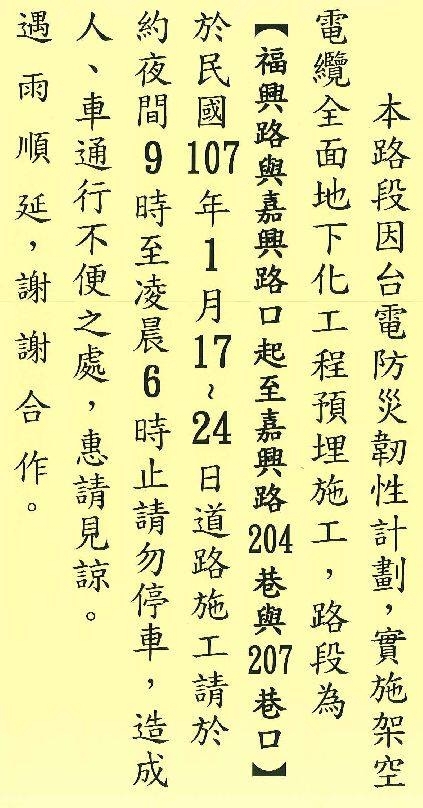 本路段因台電防災韌性計劃，實施架空
電纜全面地下化工程預埋施工，路段為
【福興路與嘉興路口起至嘉興路204巷與207巷口】
於民國107年1月17~24日道路施工請於
約夜間9時至凌晨6時止請勿停車，造成
人、車通行不便之處，惠請見諒。
遇雨順延，謝謝合作。